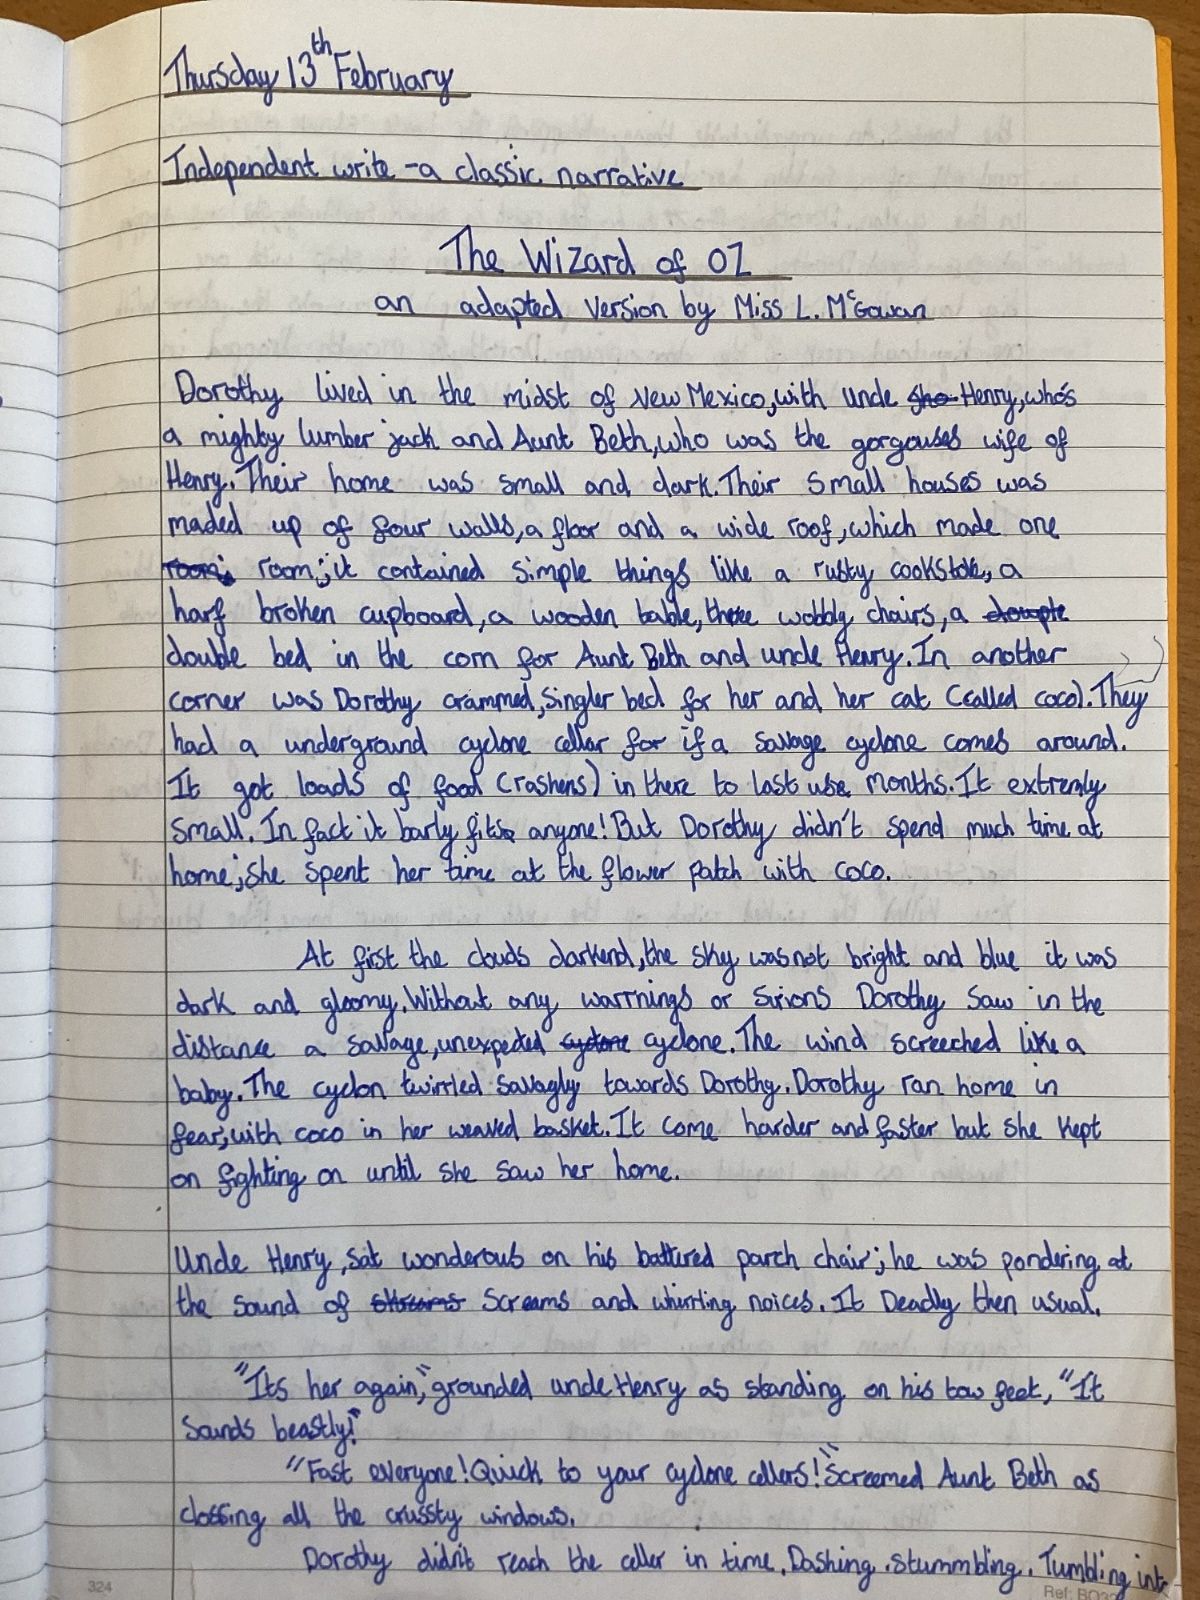 Thursday 13th February
Independent write - a classic narrative
The Wizard of OZ
an adapted version by Miss L. McGowan
Dorothy lived in the midst of New Mexico, with uncle Henry, who's
a mighby lumber jack and Aunt Beth, who was the gorgouses wife of
Henry. Their home was small and dark. Their small houses was
maded up of four walls, a floor and a wide roof, which made one
room; it contained simple things like a rusty cookstole, a
harf broken cupboard, a wooden table, three wobbly chairs, a
double bed in the corn for Aunt Beth and uncle Henry. In another
corner was Dorothy crammed, singler bed for her and her cat (called coco). They
had a underground cyclone cellar for if a savage cyclone comes around.
It got loads of food (rashens) in there to last use months. It extremly
small. In fact it barly fits anyone! But Dorothy didn't spend much time at
home; she spent her time at the flower patch with coco.
At first the clouds darkend, the sky was not bright and blue it was
dark and gloomy. Without any warrnings or sirions Dorothy saw in the
distance a savage, unexpected cyclone. The wind screeched like a
baby. The cyclon twirrled savagly towards Dorothy. Dorothy ran home in
fear, with coco in her weaved basket. It come harder and faster but she kept
on fighting on until she saw her home.
Uncle Henry, sat wonderous on his battured parch chair; he was pondering at
the sound of screams and whirrling noices. It Deadly then usual.
"Its her again," grounded uncle Henry as standing on his tow feet, "It
sounds beastly!"
"Fast everyone! Quick to your cyclone cellers!" screemed Aunt Beth as
clossing all the crussty windows.
Dorothy didn't reach the celler in time. Dashing. Stummbling. Tumbling into
324